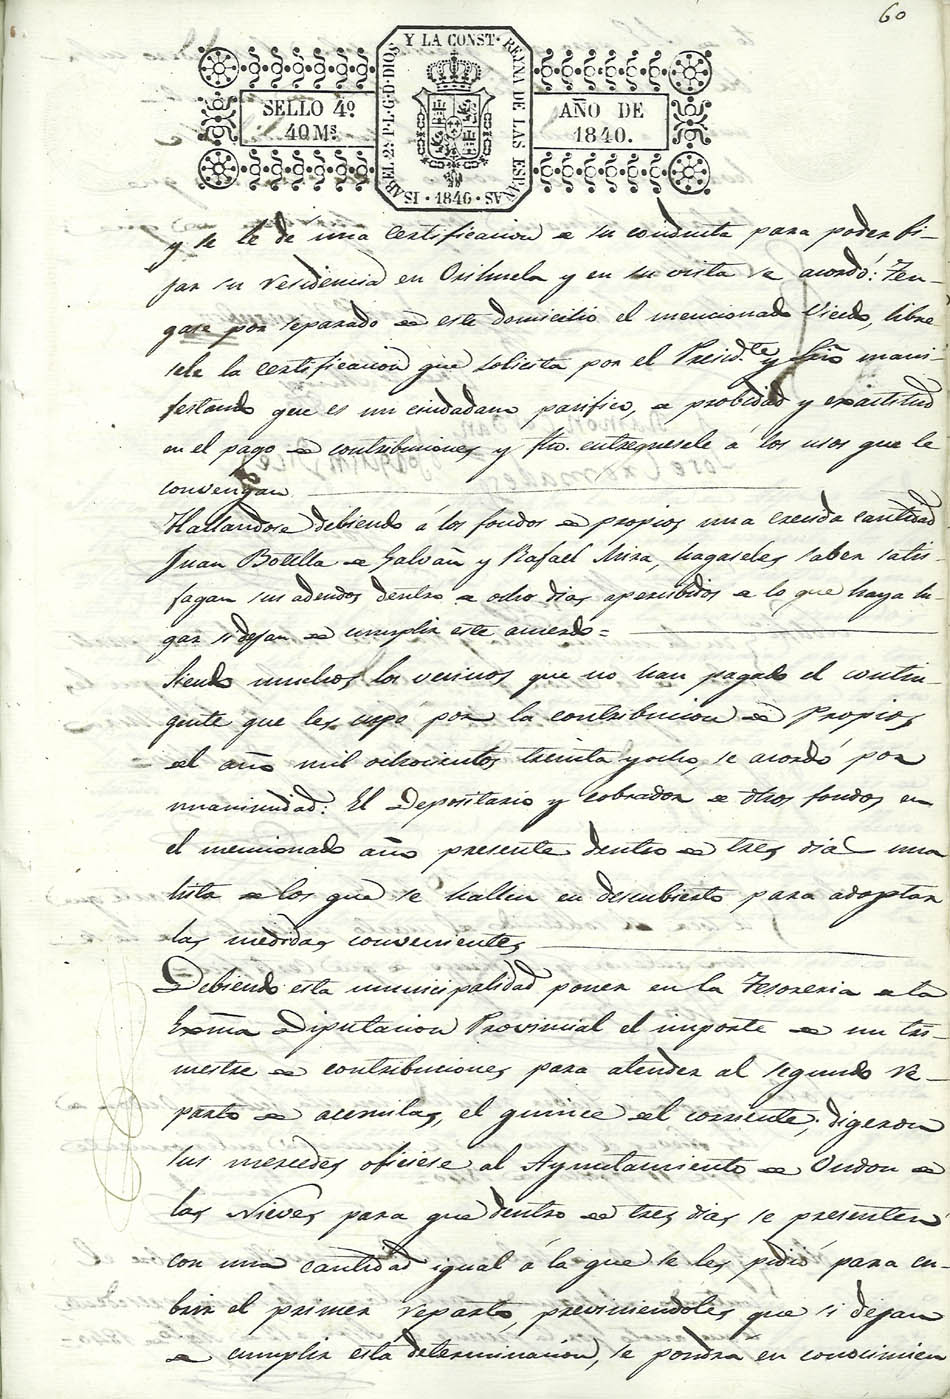 60
ISABEL 2ª P.L.G.D.DIOS Y LA CONST. REYNA DE LAS ESPAÑAS
SELLO 4º
40 Ms
AÑO DE
1840.
· 1840 ·
y se le dé una certificacion de su conducta para poder fi-
jar su residencia en Orihuela y en su vista se acordó: Ten-
gase por separado de este domicilio el mencionado, libre
sele la certificacion que solicita por el Presid.te y Srio mani-
festando que es un ciudadano pacifico, de probidad y exactitud
en el pago de contribuciones y fho. entreguesele á los usos que le
convengan
Hallandose debiendo á los fondos de propios una crecida cantidad
Juan Botella de Galvañ y Rafael Mira, hagaseles saber satis-
fagan sus adeudos dentro de ocho dias apercibidos de lo que haya lu-
gar si dejan de cumplir este acuerdo=
Siendo muchos los vecinos que no han pagado el contin-
gente que les cupo por la contribucion de Propios
del año mil ochocientos treinta y ocho, se acordó por
unanimidad: El Depositario y cobrador de dhos fondos en
el mencionado año presente dentro de tres dias una
lista de los que se hallen en descubierto para adoptar
las medidas convenientes
Debiendo esta municipalidad poner en la Tesoreria de la
Exma Diputacion Provincial el importe de un tri-
mestre de contribuciones para atender al segundo re-
parto de acemilas, el quince del corriente, digeron
sus mercedes oficiese al Ayuntamiento de Ondon de
las Nieves para que dentro de tres dias se presenten
con una cantidad igual á la que se les pidió para cu-
brir el primer reparto, previniendoles que si dejan
de cumplir esta determinacion, se pondra en conocimien